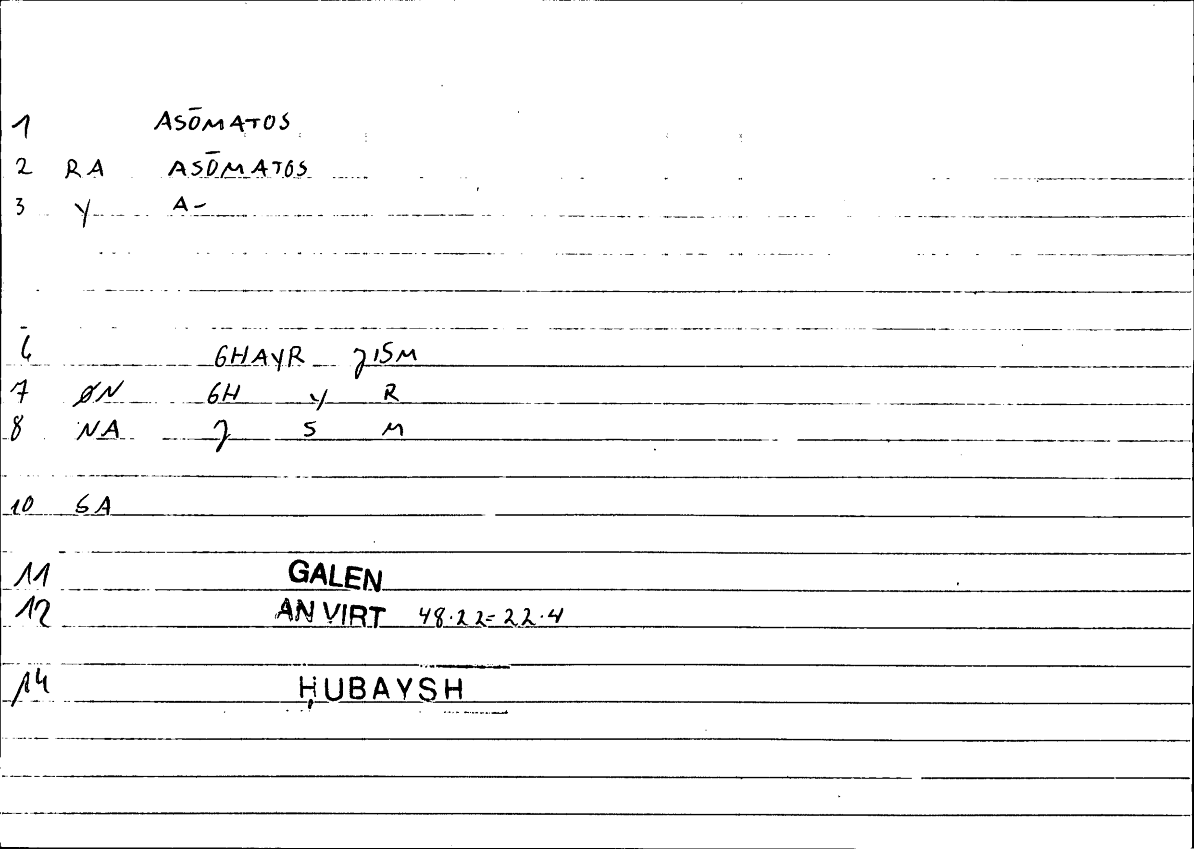 1 ASŌMATOS
2 RA ASŌMATOS
3 Y A-
6 GHAYR JISM
7 ØN GH Y R
8 NA J S M
10 SA
11 GALEN
12 AN VIRT 48.22=22.4
14 ḤUBAYSH